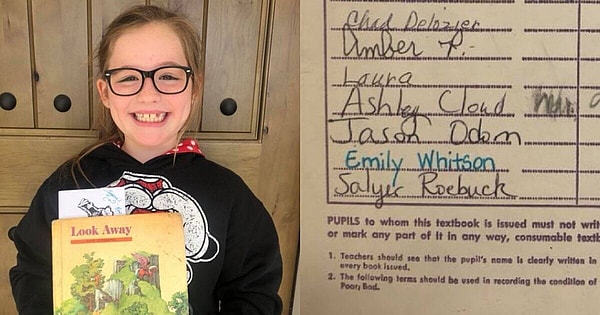 Look Away
Chad Delozier
Amber P.
Laura
Ashley Cloud
Jason Odom
Emily Whitson
Salyer Roebuck
PUPILS to whom this textbook is issued must not
or mark any part of it in any way, consumable
1. Teachers should see that the pupil's name is clearly written in
every book issued.
2. The following terms should be used in recording the condition of
Poor; Bad.